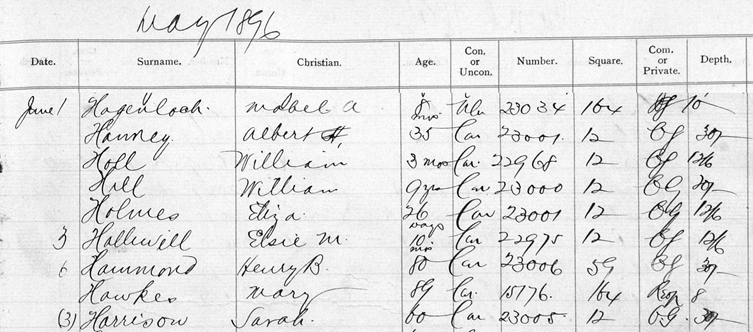 May 1896
Date. Surname. Christian. Age. Con. or Uncon. Number. Square. Com. or Private. Depth.
June 1 Hagenloch. Mabel A 8 mos Un 23034 164 10
Hanney. Albert 35 Con 23001. 12 CG 30/-
Holl William 3 mos Con. 22968 12 CG 12/6
Hill William 9 yrs Con 23000 12 CG 30/-
Holmes Eliza. 26 Con 23001 12 CG 12/6
3 Halliwell Elsie M. 10 Con 22975 12 CG 12/6
6 Hammond Henry B. 80 Con 23006 59 CG 30/-
Hawkes Mary 89 Con. 15176. 164 Reop 8
(3) Harrison Sarah. 60 Con 23005 12 CG. 30/-